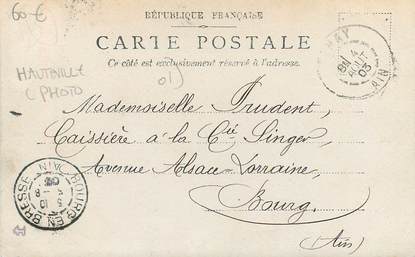 60 €
RÉPUBLIQUE FRANÇAISE
CARTE POSTALE
Ce côté est exclusivement réservé à l'adresse.
HAUTEVILLE
(PHOTO
01)
4
AOUT
03
AIN
Mademoiselle Prudent,
Caissière à la Cie Singer,
Avenue Alsace-Lorraine,
Bourg.
(Ain)
BOURG-EN-BRESSE
AIN